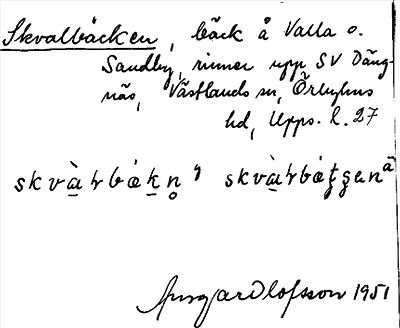 Skvalbäcken, bäck å Valla o.
Sandby, rinner upp SV Däng-
näs, Västlands sn, Örbyhus
hd, Upps. l. 27
skvàɫbákn̥ y skvàɫbátʂɛn ä
Ingard Olofsson 1951